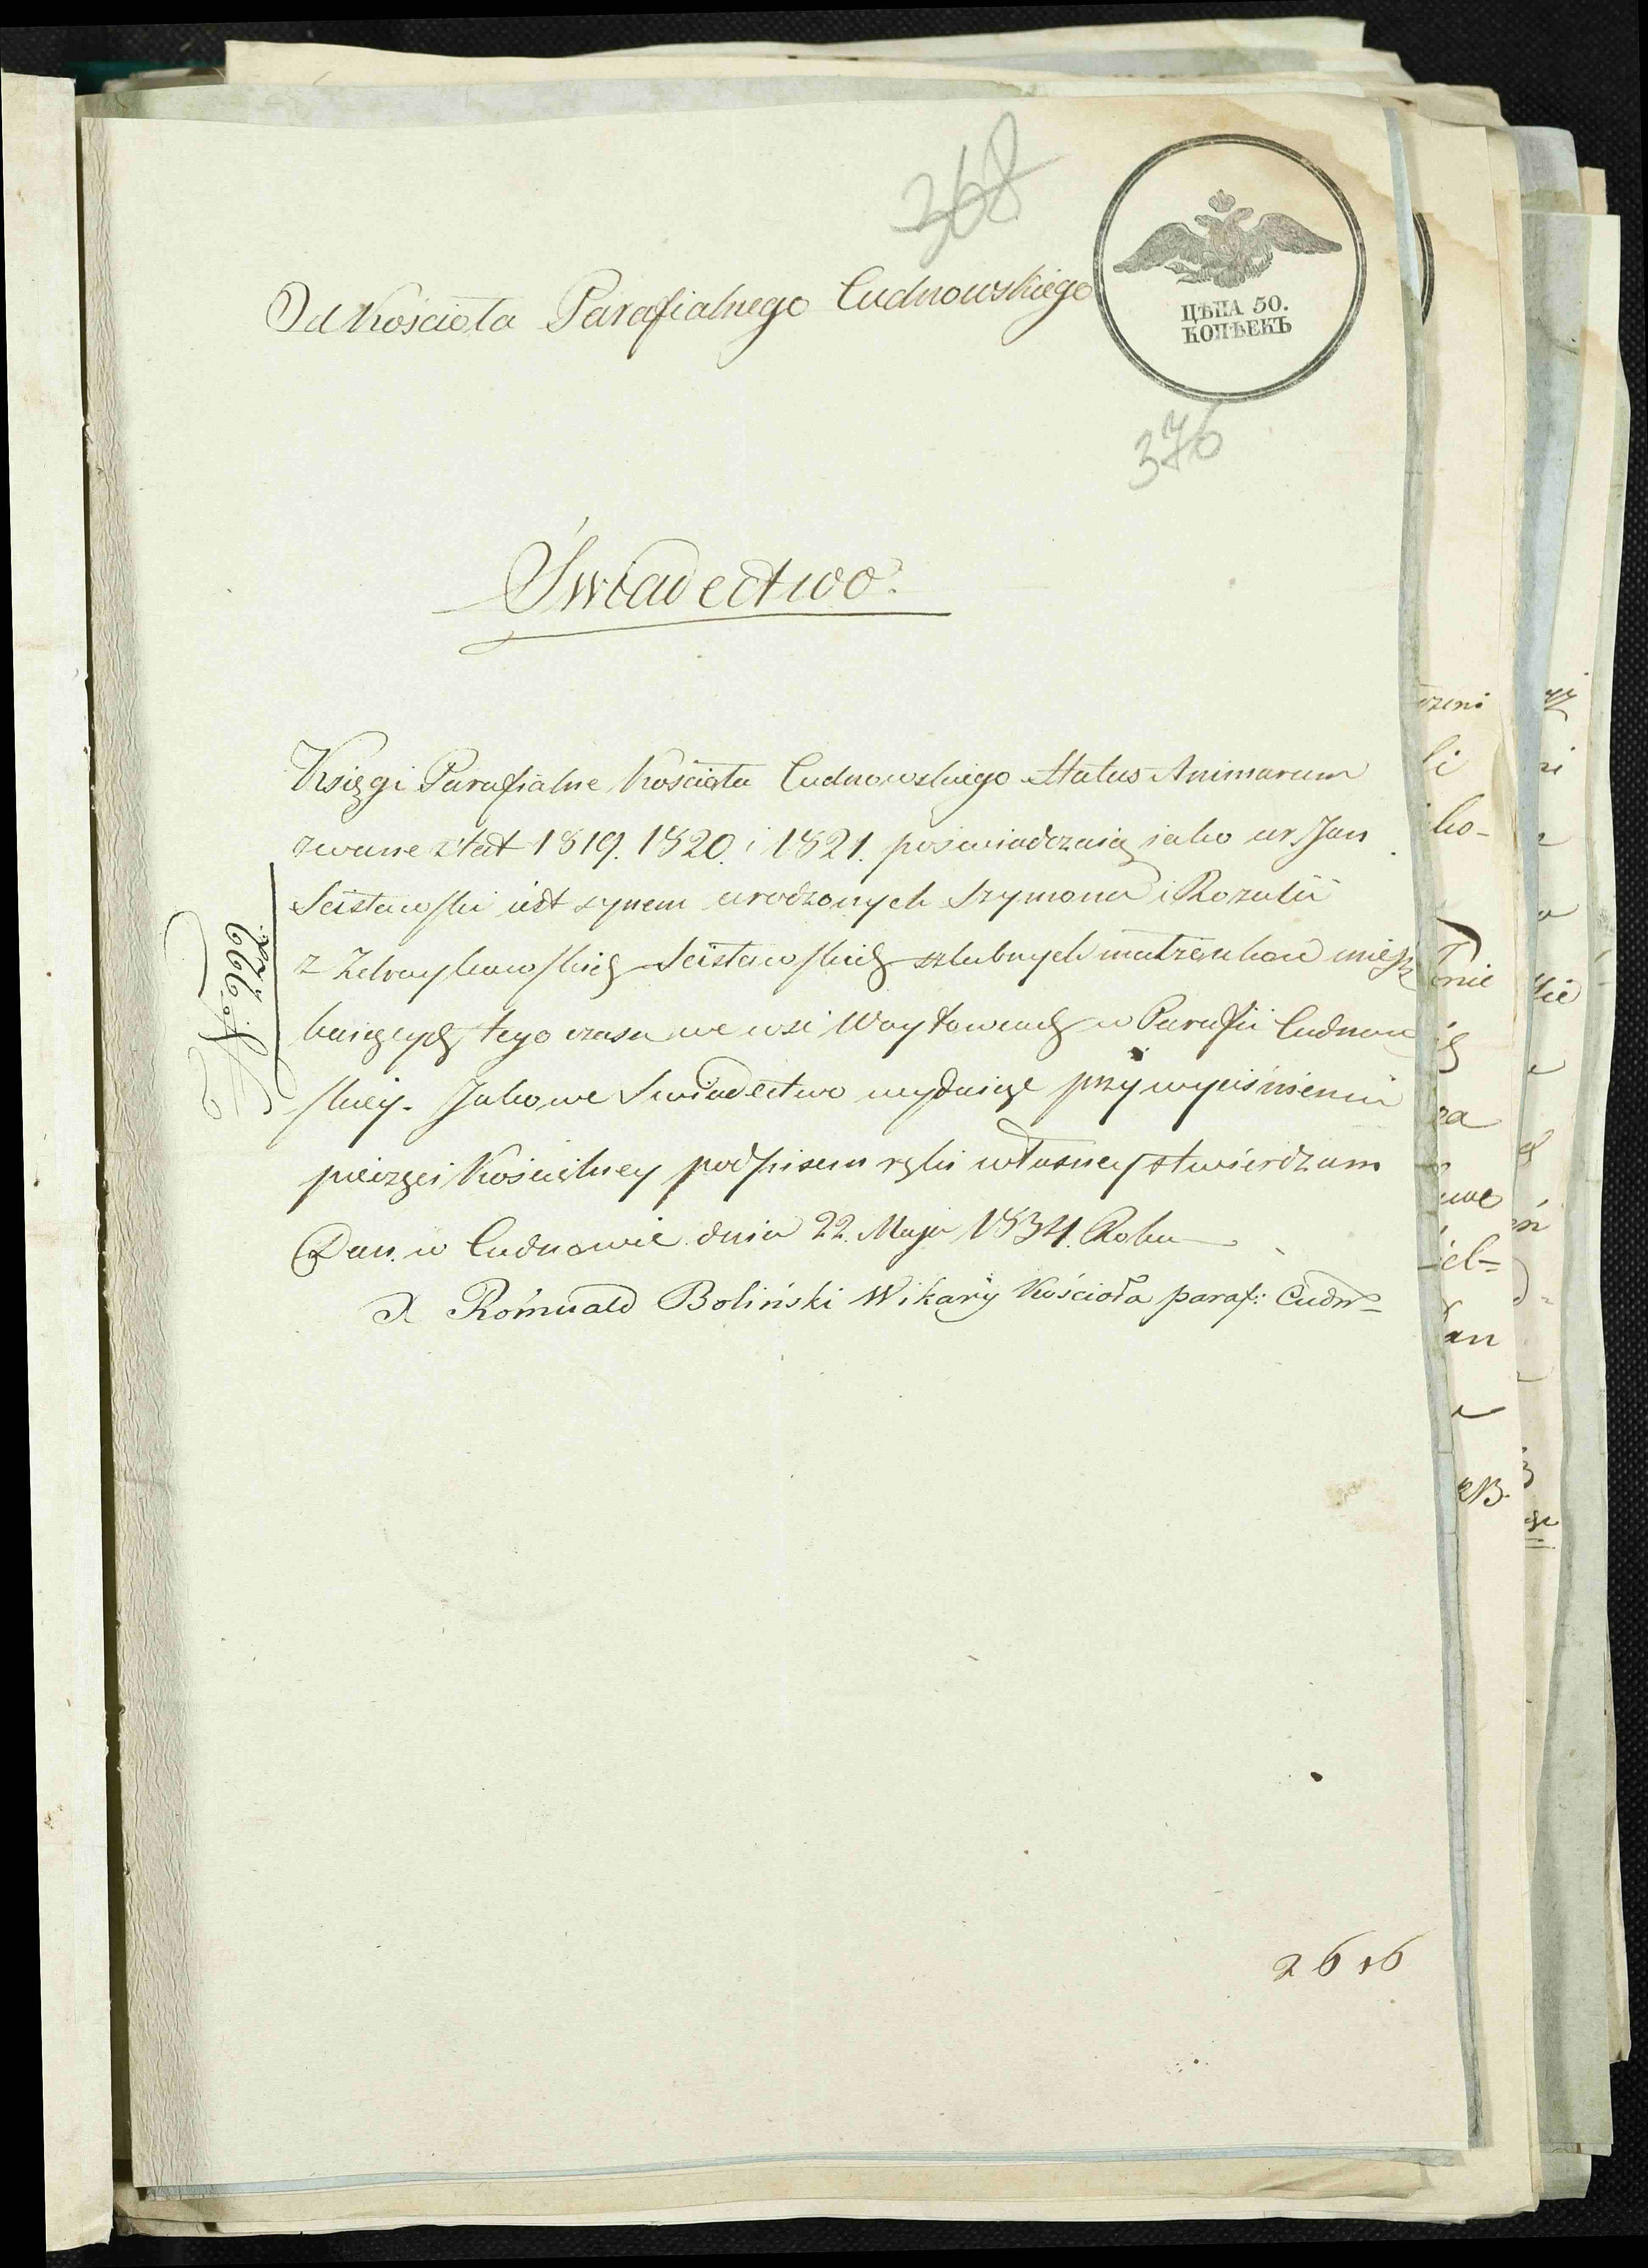 368
Od Kościoła Parafialnego Cudnowskiego
ЦѢНА 50.
КОПѢЕКЪ
376
Świadectwo.
Księgi Parafialne Kościoła Cudnowskiego Status Animarum
zwane z lat 1819. 1820. i 1821. poswiadczaią iako ur. Jan
Scisławski iest synem urodzonych Szymona i Rozalii
z Scisławskich szlubnych małżonkow miesz
kaiących tego czasu we wsi Woytowcach w Parafii Cudnow
skiey. Jakowe Swiadectwo wydaiąc przy wyciśnieniu
pieczęci Kościelney podpisem ręki własney stwierdzam
Dan. w Cudnowie dnia 22. Maja 1834. Roku
X Romuald Boliński Wikary Kościoła paraf: Cudn
No. 666
2616